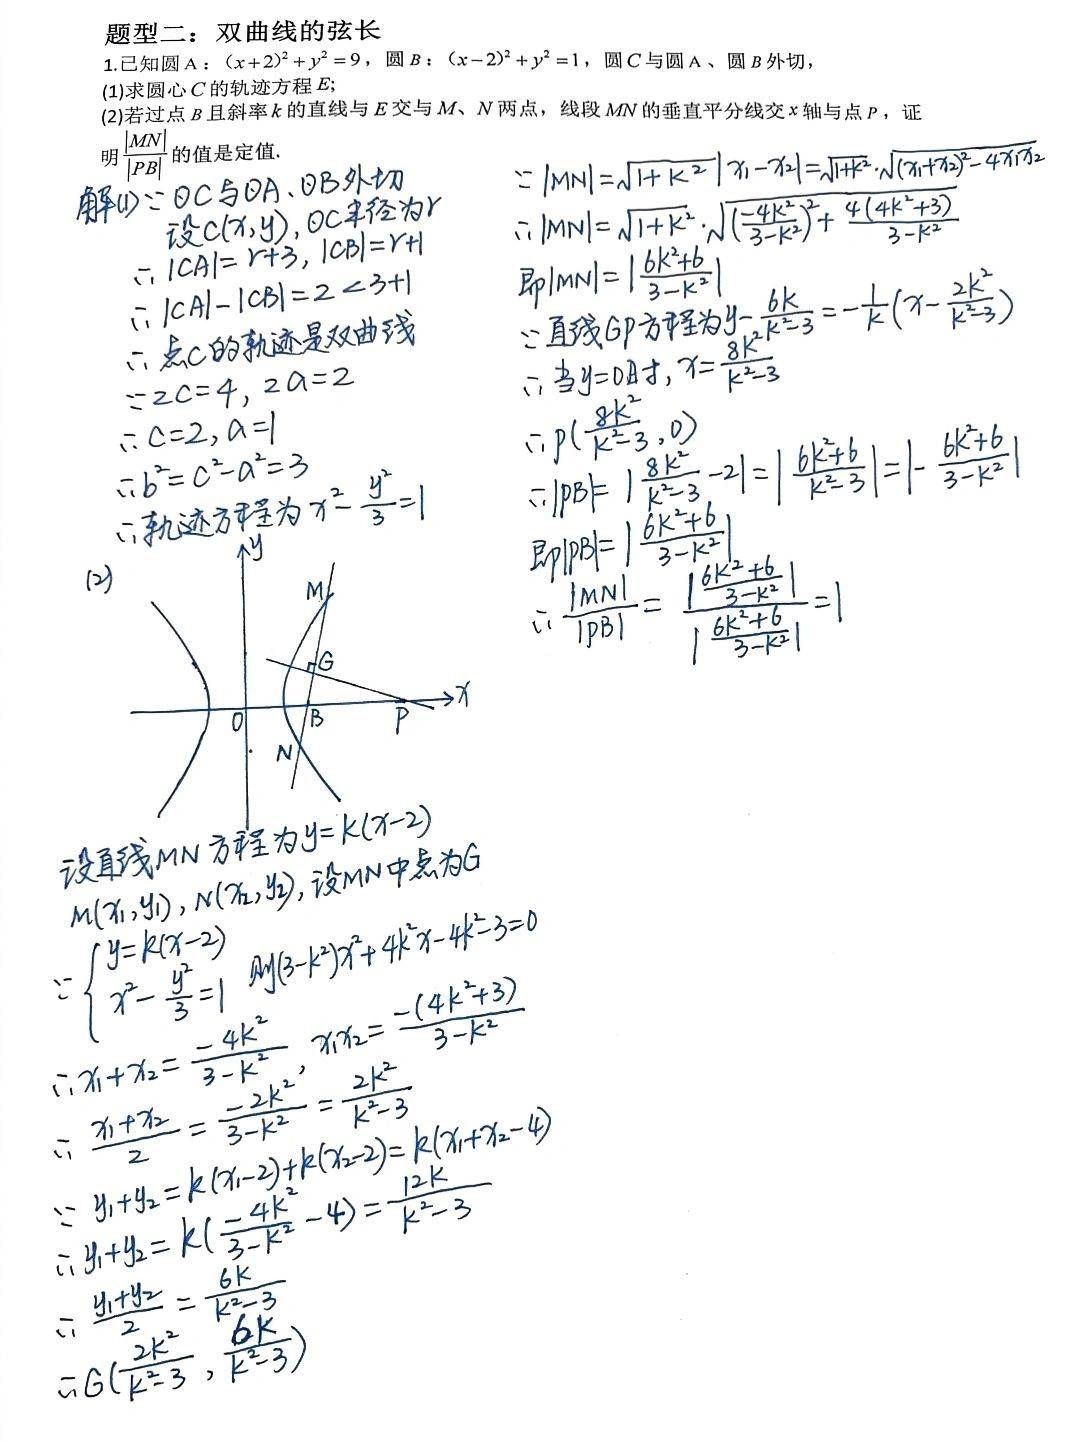 题型二：双曲线的弦长
1.已知圆A：(x+2)²+y²=9，圆B：(x-2)²+y²=1，圆C与圆A、圆B外切，
(1)求圆心C的轨迹方程E;
(2)若过点B且斜率k的直线与E交与M、N两点，线段MN的垂直平分线交x轴与点P，证
明|MN|/|PB|的值是定值.
解(1)∵⊙C与⊙A、⊙B外切
设C(x,y),⊙C半径为r
∴|CA|=r+3,|CB|=r+1
∴|CA|-|CB|=2<3+1
∴点C的轨迹是双曲线
∵2C=4,2a=2
∴C=2,a=1
∴b²=c²-a²=3
∴轨迹方程为x²-y²/3=1
(2)
y
M
G
x
O
B
P
N
设直线MN方程为y=k(x-2)
M(x₁,y₁),N(x₂,y₂),设MN中点为G
∵{y=k(x-2)
x²-y²/3=1 则(3-k²)x²+4k²x-4k²-3=0
∴x₁+x₂=-4k²/(3-k²),x₁x₂=-(4k²+3)/(3-k²)
∴(x₁+x₂)/2=-2k²/(3-k²)=2k²/(k²-3)
∵y₁+y₂=k(x₁-2)+k(x₂-2)=k(x₁+x₂-4)
∴y₁+y₂=k(-4k²/(3-k²)-4)=12k/(k²-3)
∴(y₁+y₂)/2=6k/(k²-3)
∴G(2k²/(k²-3),6k/(k²-3))
∵|MN|=√(1+k²)|x₁-x₂|=√(1+k²)·√((x₁+x₂)²-4x₁x₂)
∴|MN|=√(1+k²)·√((-4k²/(3-k²))²+4(4k²+3)/(3-k²))
即|MN|=|(6k²+6)/(3-k²)|
∵直线GP方程为y-6k/(k²-3)=-1/k(x-2k²/(k²-3))
∴当y=0时,x=8k²/(k²-3)
∴P(8k²/(k²-3),0)
∴|PB|=|8k²/(k²-3)-2|=|(6k²+6)/(k²-3)|=|-(6k²+6)/(3-k²)|
即|PB|=|(6k²+6)/(3-k²)|
∴|MN|/|PB|=|(6k²+6)/(3-k²)|/|(6k²+6)/(3-k²)|=1